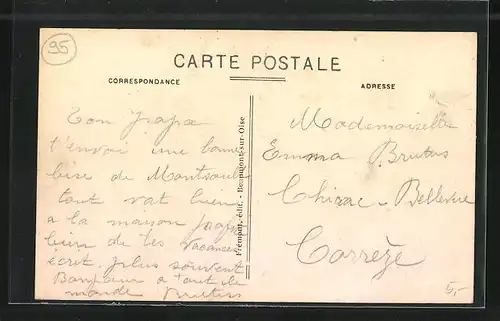 95
CARTE POSTALE
CORRESPONDANCE
ADRESSE
Ton papa
t'envoi une bonne
bise de Montsoult
tout vat bien
a la maison
bien de tes vacances
ecrit plus souvent
Bonjour a tout le
monde
Frémont, édit. - Beaumont-sur-Oise
Mademoiselle
Emma Brutus
Chirac-Bellevue
Corrèze
5,-